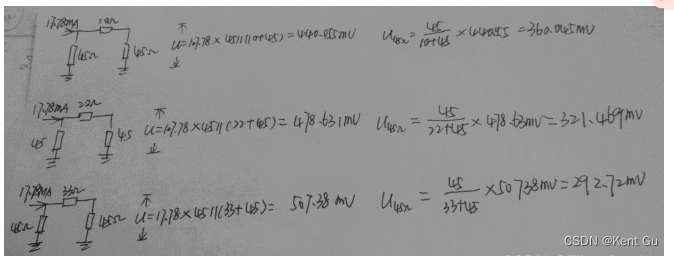 17.78mA 10Ω
45Ω 45Ω U=17.78×45//(10+45)=440.055mV U45Ω=45/10+45×440.055=360.045mV
17.78mA 22Ω
45 45 U=17.78×45//(22+45)=478.631mV U45Ω=45/22+45×478.63mV=321.469mV
17.78mA 33Ω
45Ω 45Ω U=17.78×45//(33+45)=507.38mV U45Ω=45/33+45×507.38mV=292.72mV
CSDN @Kent Gu